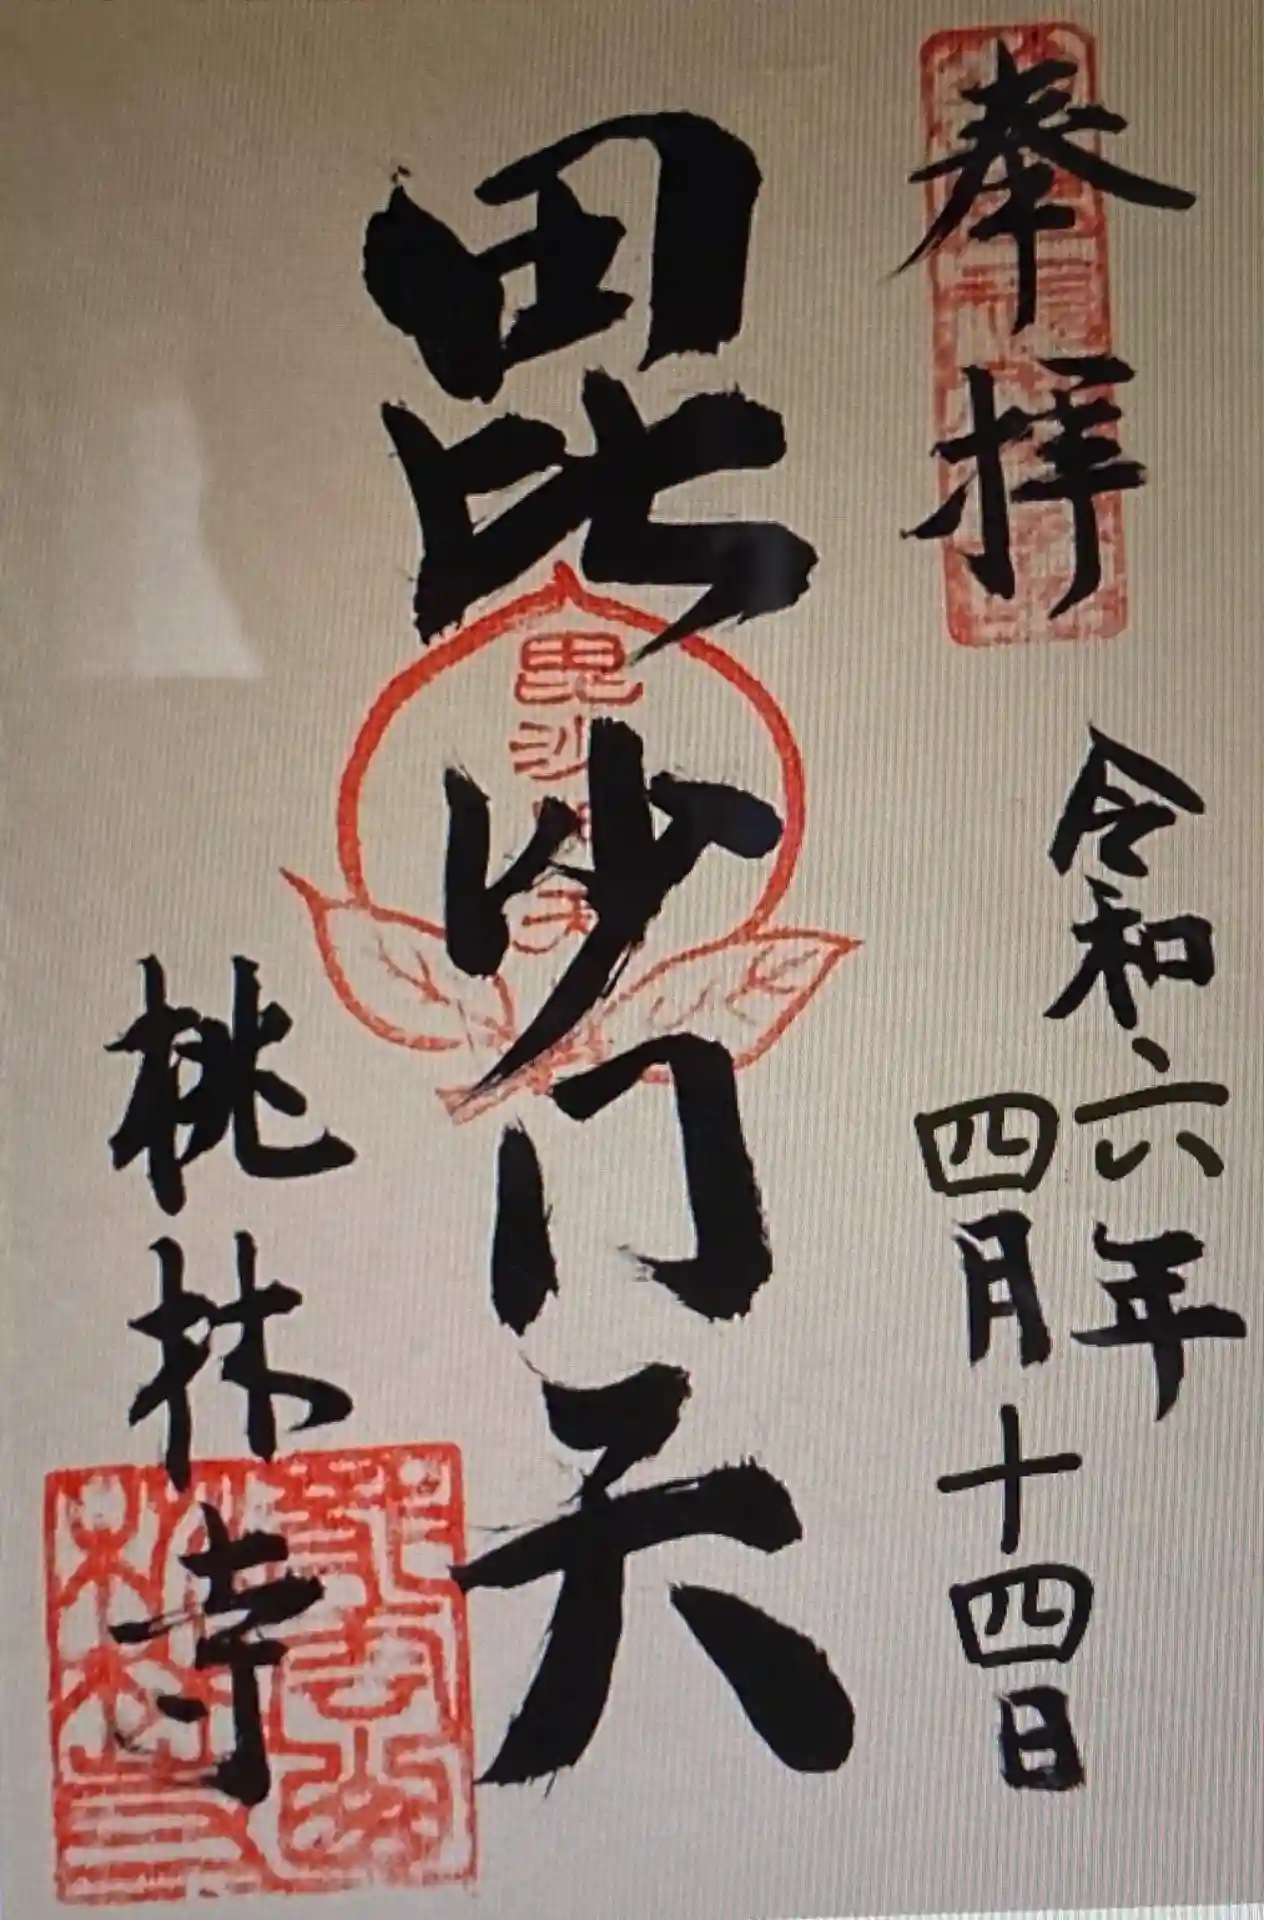 奉拝
令和六年
四月十四日
毘沙门天
毘沙門天
桃林寺